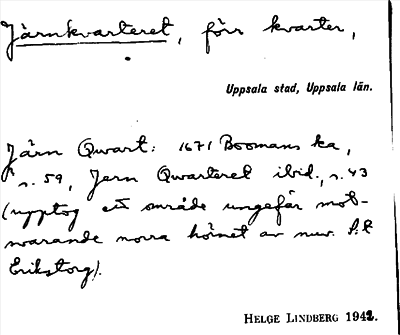 Järnkvarteret, förr kvarter,
Uppsala stad, Uppsala län.
Järn Qwart: 1671 Boomans ka,
s. 59, Jern Qwarteret ibid., s. 43
(upptog ett område ungefär mot-
svarande norra hörnet av nuv. S:t
Erikstorg).
HELGE LINDBERG 1942.